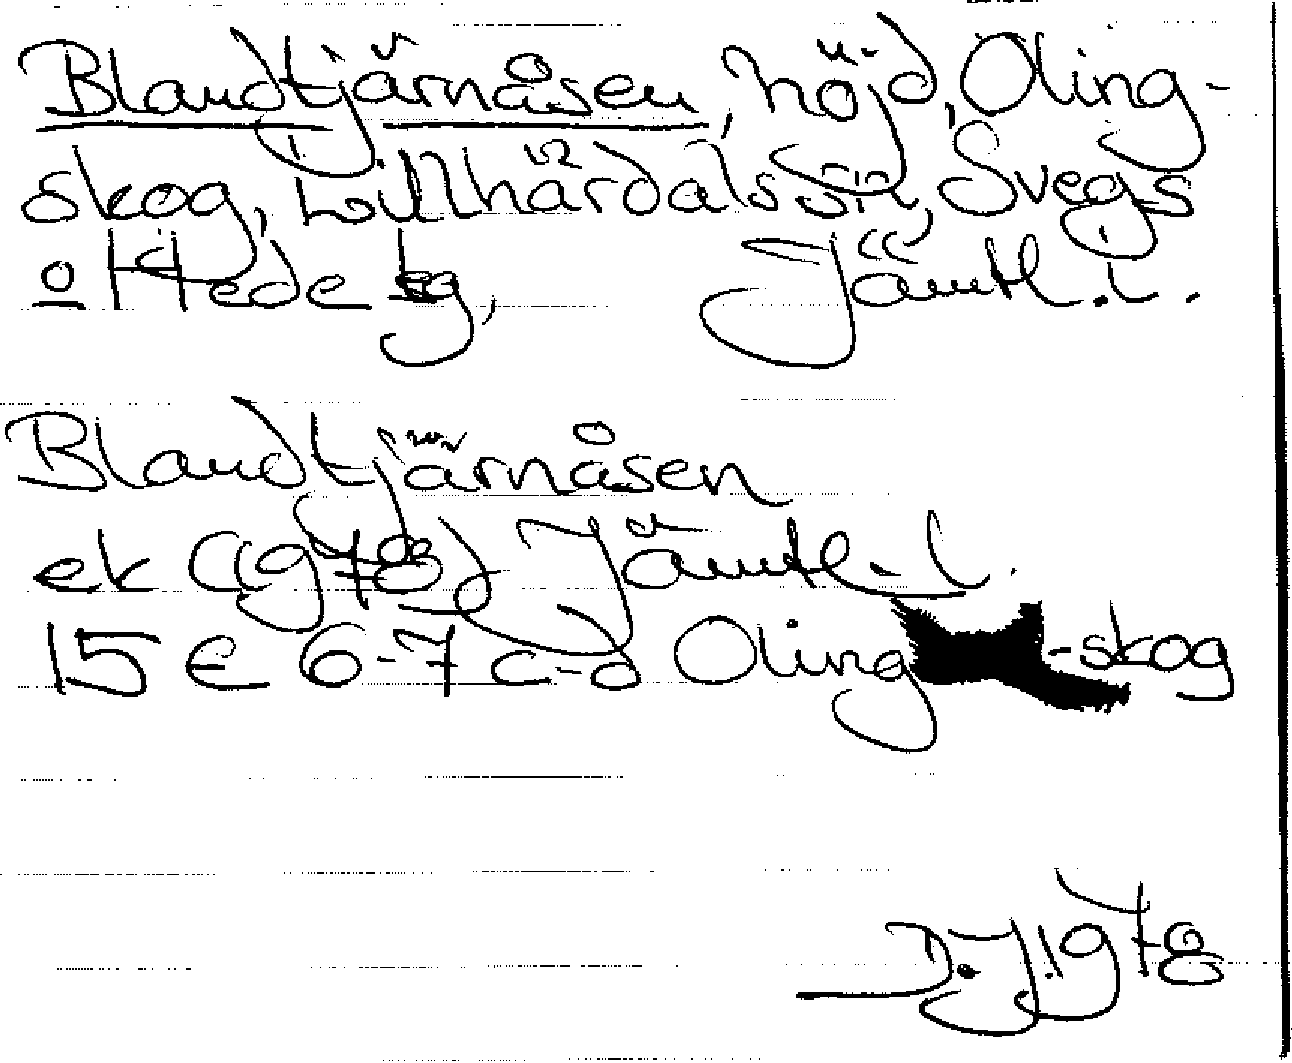 Blandtjärnåsen, höjd, Oling-
skog, Lillhärdals sn, Svegs
o Hede tg, Jämtl. l.
Blandtjärnåsen
ek (1978) Jämtl. l.
15 E 6-7 c-d Oling-skog
D.J. 1978